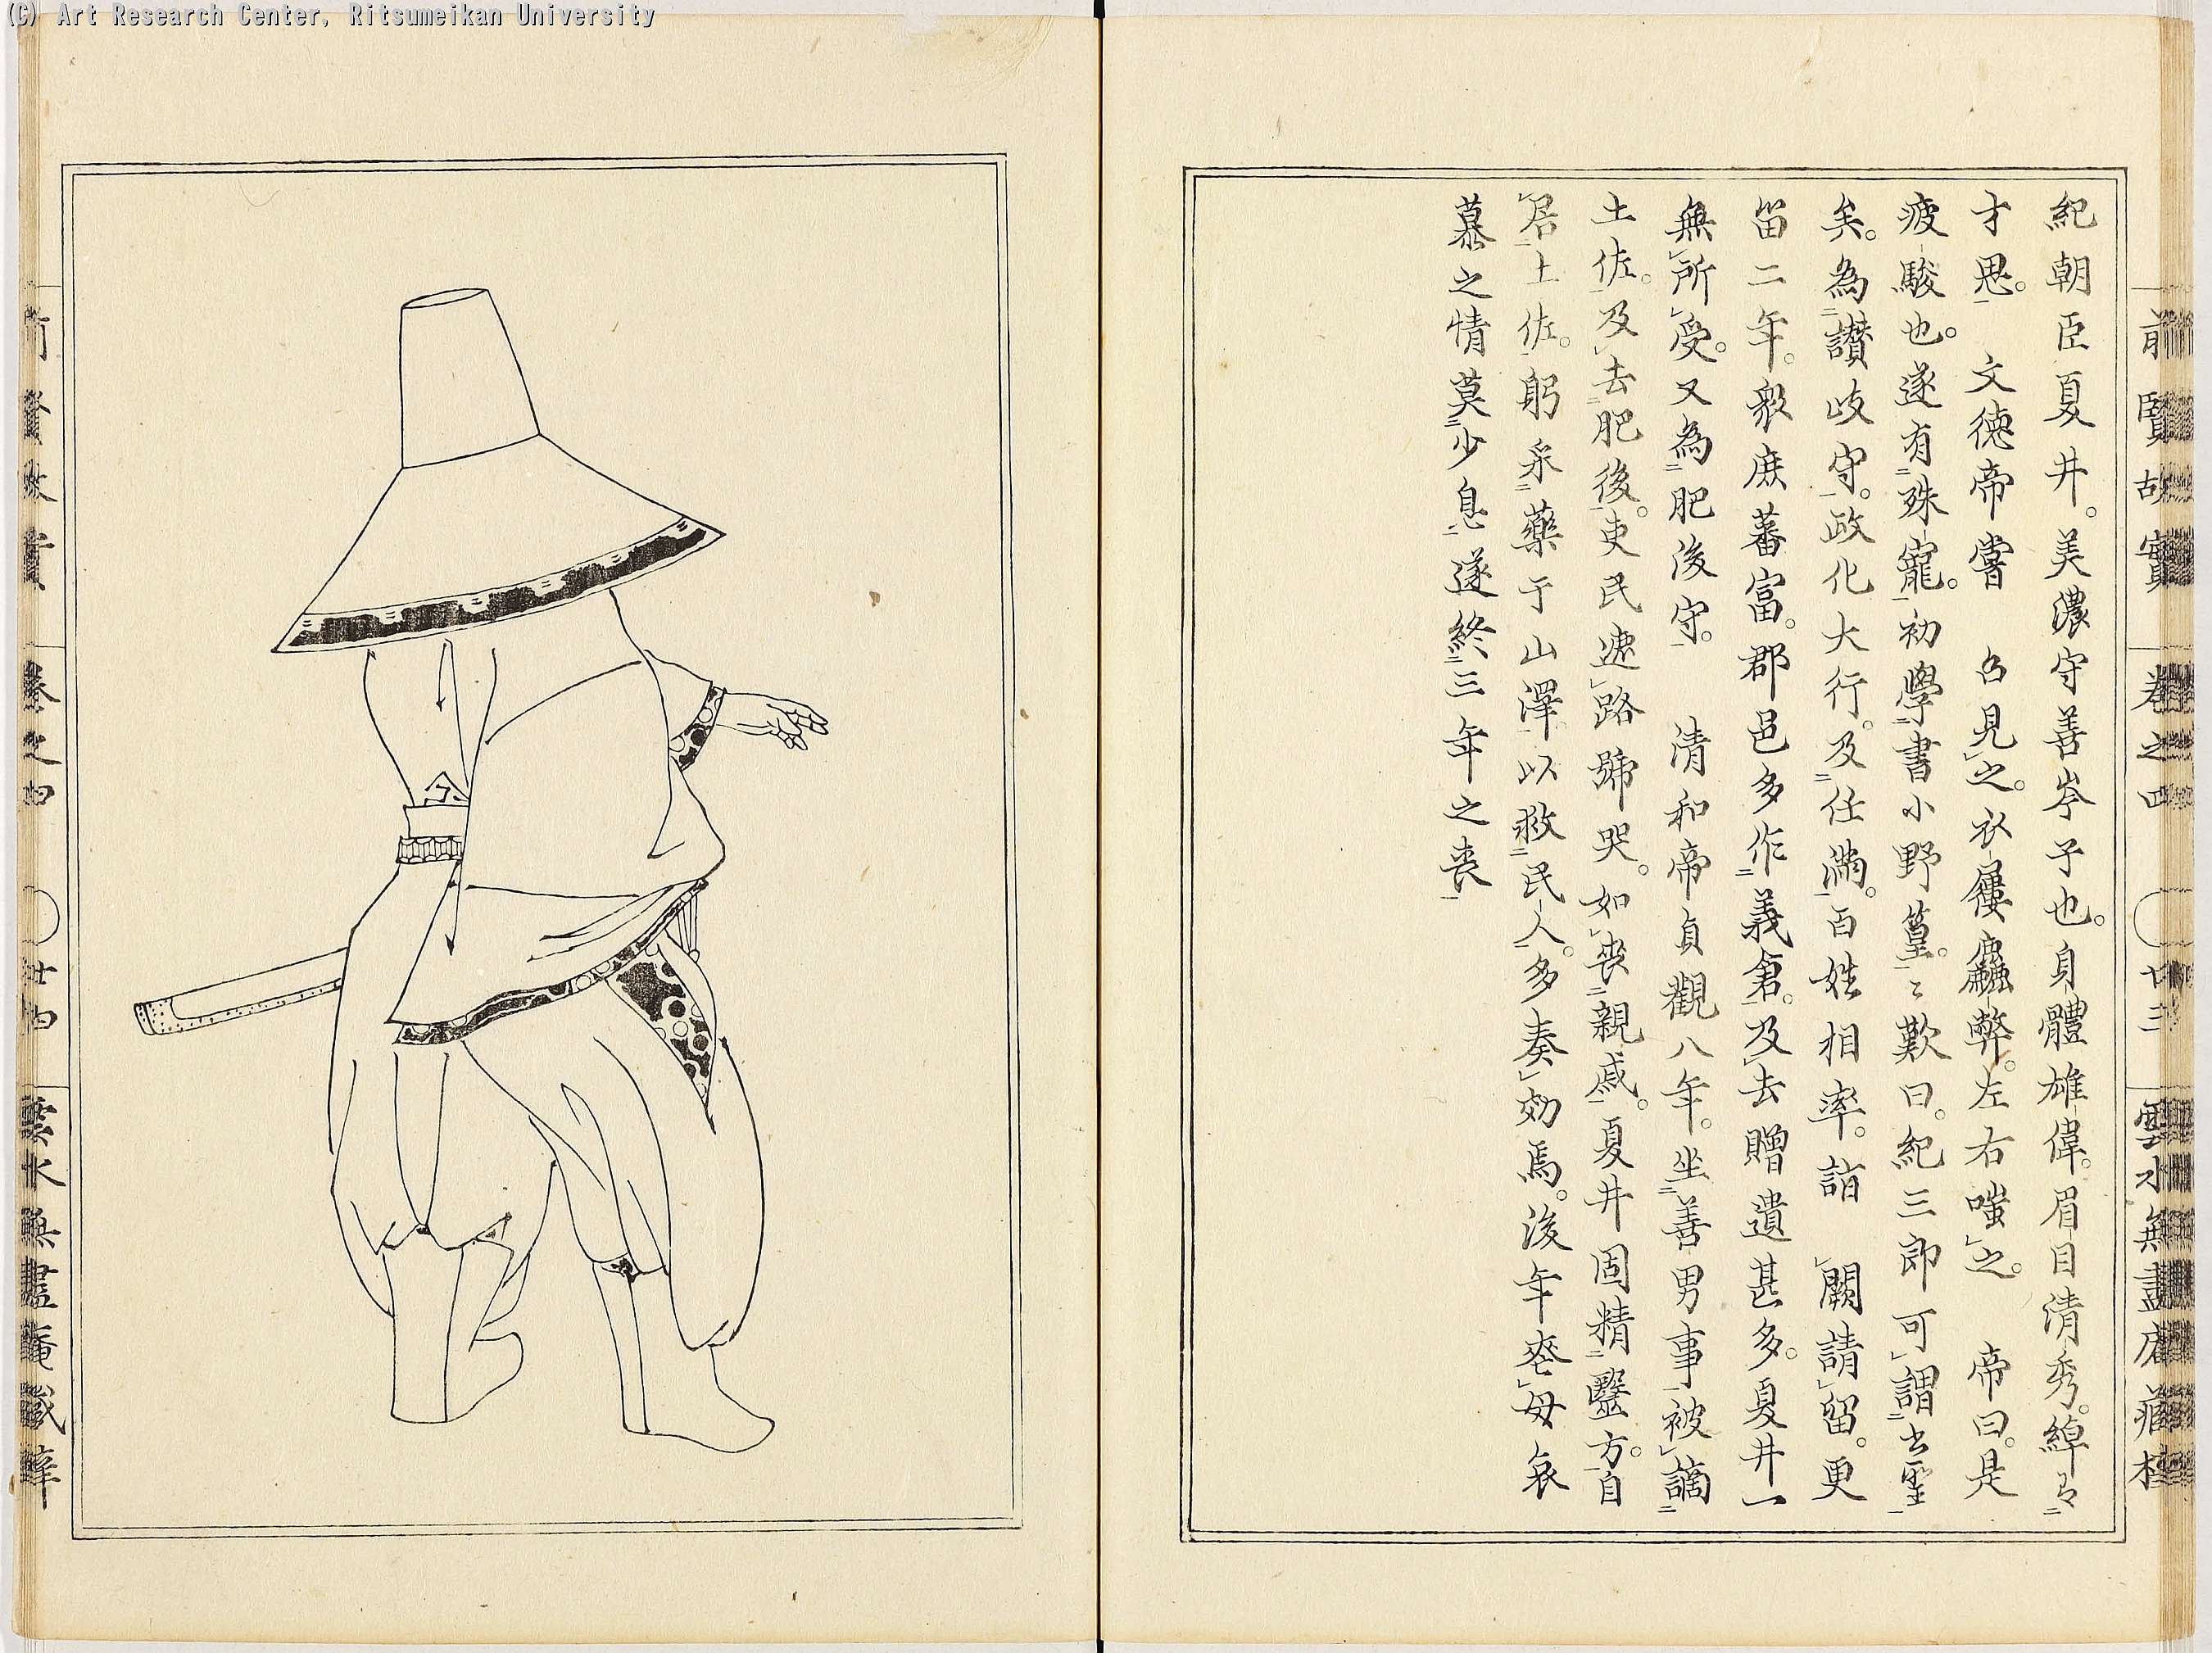 (C) Art Research Center, Ritsumeikan University
前賢故實 卷之四 〇 廿三 雲水無盡庵藏梓
紀朝臣夏井。美濃守善岑子也。身體雄偉。眉目清秀。綽有
才思。 文德帝嘗 召見之。衣屨麤弊。左右嗤之。 帝曰。是
疲駿也。遂有殊寵。初學書小野篁。〻歎曰。紀三郎可謂書聖
矣。為讃岐守。政化大行。及任滿。百姓相率。詣 闕請留。更
留二年。衆庶蕃富。郡邑多作義倉。及去贈遺甚多。夏井一
無所受。又為肥後守。 清和帝貞觀八年。坐善男事被謫
土佐。及去肥後。吏民遮路號哭。如喪親戚。夏井固精醫方。自
居土佐。躬采藥于山澤。以救民人。多奏効焉。後年喪母哀
慕之情莫少息。遂終三年之喪
前賢故實 卷之四 〇 廿四 雲水無盡庵藏梓